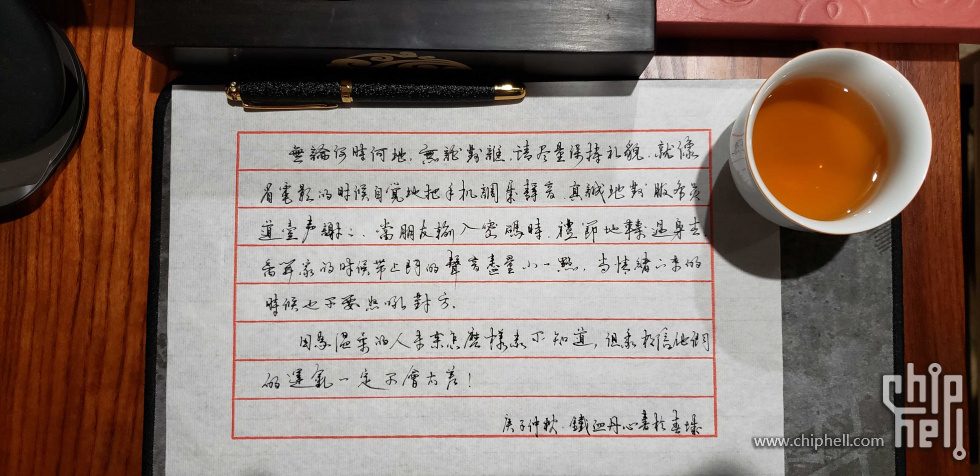 無論何時何地，無論對誰，請尽量保持礼貌，就像
看電影的時候自覚地把手机調柔靜音，真誠地對服務員
道壹声謝謝，當朋友輸入密碼時，禮節地轉過身去
告罪家的時候带上門的聲音盡量小一點，当情緒上来的
時候也不要怒吼對方。
因為温柔的人未来怎麼樣我不知道，但我相信他們
的運氣一定不會太差！
庚子仲秋 鐵血丹心書於
www.chiphell.com
chip
hell